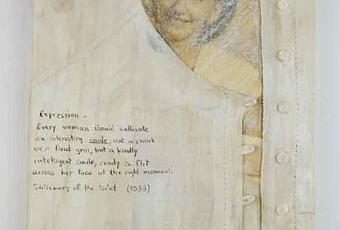 Expression -
Every woman should cultivate
an interesting smile, not a smirk
or a fixed grin, but a kindly
intelligent smile, ready to flit
across her face at the right moment.
Dictionary of the Toilet (1933)